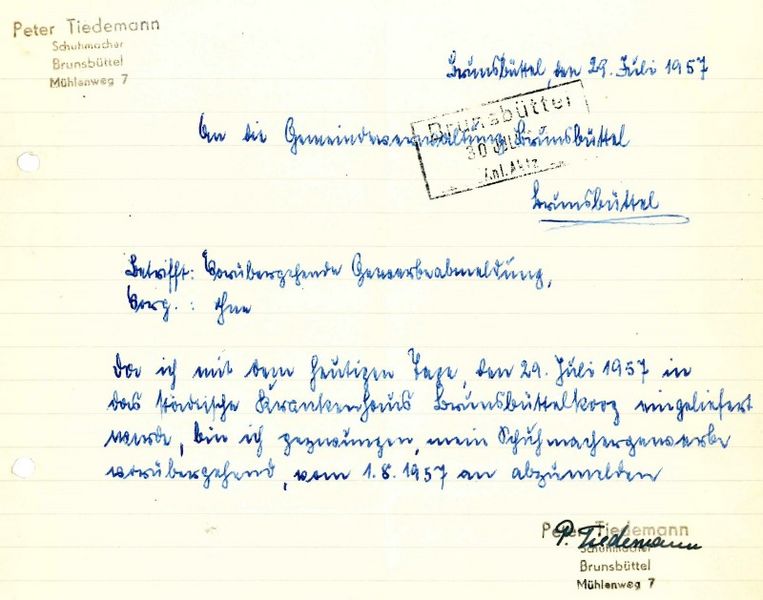 Peter Tiedemann
Schuhmacher
Brunsbüttel
Mühlenweg 7
Brunsbüttel, den 29. Juli 1957
An die Gemeindeverwaltung Brunsbüttel
Brunsbüttel
30
Brunsbüttel
Betrifft: Vorübergehende Gewerbeabmeldung,
Vorg. : ohne
Da ich mit dem heutigen Tage, den 29. Juli 1957 in
das städtische Krankenhaus Brunsbüttelkoog eingeliefert
wurde, bin ich gezwungen, mein Schuhmachergewerbe
vorübergehend, vom 1.8.1957 an abzumelden
Peter Tiedemann
P. Tiedemann
Schuhmacher
Brunsbüttel
Mühlenweg 7